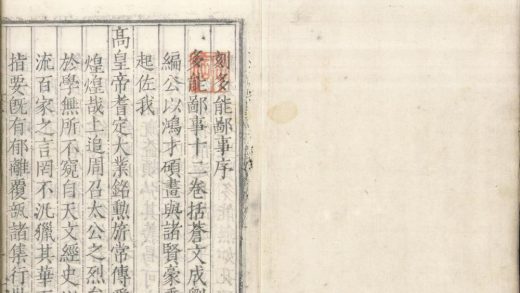 刻多能鄙事序
多能鄙事十二卷括蒼文成劉
編公以鴻才碩畫與諸賢豪
起佐我
髙皇帝耆定大業銘勲旂常傳
煌煌哉上追周召太公之烈
於學無所不窺自天文經史
流百家之言罔不汎獵其華
指要旣有郁離覆瓿諸集行